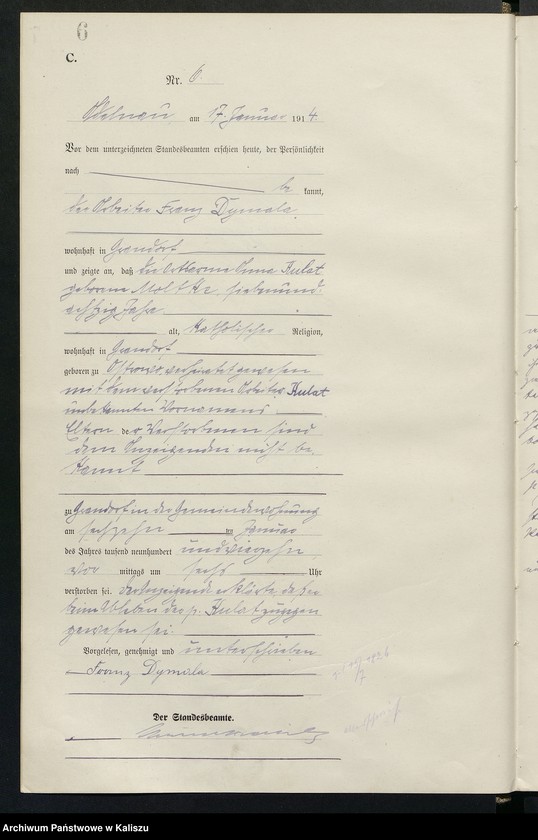 6
C.
Nr. 6.
am 17. Januar 1914.
Vor dem unterzeichneten Standesbeamten erschien heute, der Persönlichkeit
nach be kannt,
der Arbeiter Franz Dymala
wohnhaft in Grandorf
und zeigte an, daß die Anna Kulat
geborene siebenund-
achtzig Jahre
alt, Katholischer Religion,
wohnhaft in Grandorf
geboren zu Ostrowo verheiratet gewesen
mit dem verstorbenen Arbeiter Kulat
unbekannten Vornamens
Eltern der Verstorbenen sind
dem Anzeigenden nicht be-
kannt
zu Grandorf in der Gemeindewohnung
am sechzehn ten Januar
des Jahres tausend neunhundert und vierzehn
vor mittags um sechs Uhr
verstorben sei. Der Anzeigende erklärte, daß er
beim Ableben der p. Kulat zugegen
gewesen sei.
Vorgelesen, genehmigt und unterschrieben
Franz Dymala
Der Standesbeamte.
Archiwum Państwowe w Kaliszu